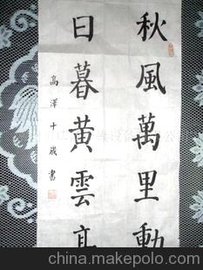 秋風萬里動
日暮黄雲高
高澤十歲書
china.makepolo.com